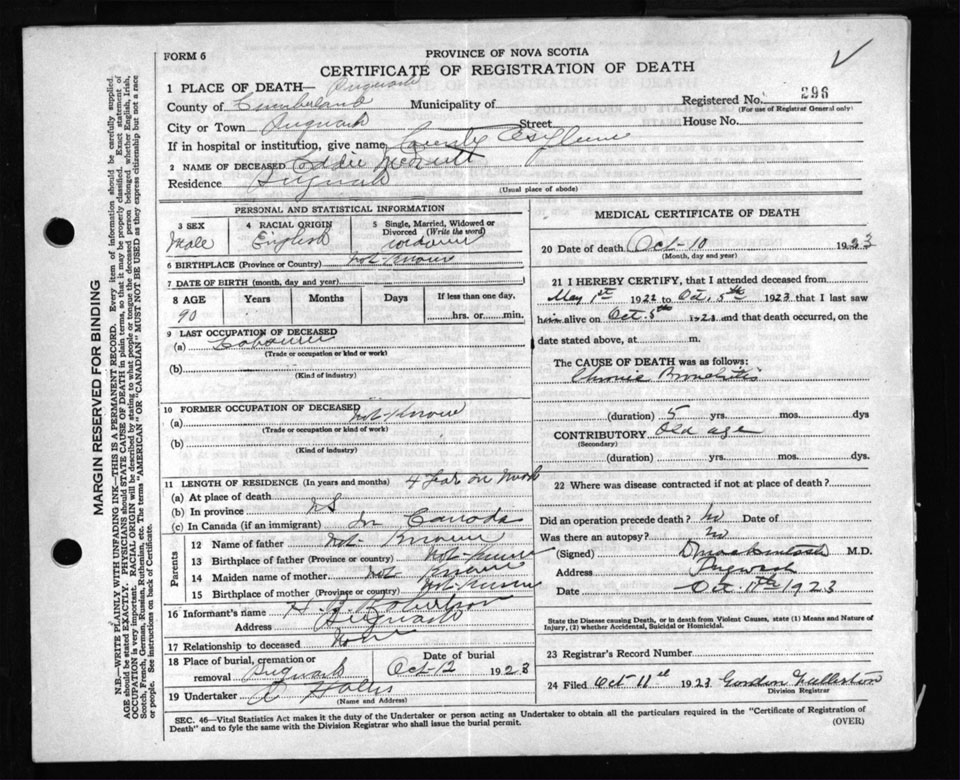 FORM 6
PROVINCE OF NOVA SCOTIA
CERTIFICATE OF REGISTRATION OF DEATH
1 PLACE OF DEATH— Pugwash
County of Cumberland Municipality of
Registered No. 296
(For use of Registrar General only)
City or Town Pugwash Street House No.
If in hospital or institution, give name County Asylum
2 NAME OF DECEASED
Residence Pugwash
(Usual place of abode)
PERSONAL AND STATISTICAL INFORMATION
3 SEX
Male
4 RACIAL ORIGIN
English
5 Single, Married, Widowed or Divorced (Write the word)
6 BIRTHPLACE (Province or Country) not Known
7 DATE OF BIRTH (month, day and year)
8 AGE Years Months Days If less than one day,
90 hrs. or min.
9 LAST OCCUPATION OF DECEASED
(a)
(Trade or occupation or kind or work)
(b)
(Kind of industry)
10 FORMER OCCUPATION OF DECEASED
(a) not Known
(Trade or occupation or kind of work)
(b)
(Kind of industry)
11 LENGTH OF RESIDENCE (In years and months)
(a) At place of death 4 Years
(b) In province NS
(c) In Canada (if an immigrant) In Canada
Parents
12 Name of father not Known
13 Birthplace of father (Province or country) not Known
14 Maiden name of mother not Known
15 Birthplace of mother (Province or country) not Known
16 Informant's name Robertson
Address Pugwash
17 Relationship to deceased None
18 Place of burial, cremation or removal Pugwash
Date of burial Oct 12 1923
19 Undertaker
(Name and Address)
MEDICAL CERTIFICATE OF DEATH
20 Date of death Oct-10 1923
(Month, day and year)
21 I HEREBY CERTIFY, that I attended deceased from
May 1st 1922 to Oct. 5th 1923 that I last saw
him alive on Oct 5th 1923 and that death occurred, on
date stated above, at m.
The CAUSE OF DEATH was as follows:
Chronic Bronchitis
(duration) 5 yrs. mos. dys
CONTRIBUTORY Old age
(Secondary)
(duration) yrs. mos. dys.
22 Where was disease contracted if not at place of death?
Did an operation precede death? No Date of
Was there an autopsy? No
(Signed) D Mackintosh M.D.
Address Pugwash
Date Oct 11th 1923
State the Disease causing Death, or in death from Violent Causes, state (1) Means and Nature of
Injury, (2) whether Accidental, Suicidal or Homicidal.
23 Registrar's Record Number
24 Filed Oct 11th 1923 Gordon Fullerton
Division Registrar
SEC. 46—Vital Statistics Act makes it the duty of the Undertaker or person acting as Undertaker to obtain all the particulars required in the "Certificate of Registration of
Death" and to fyle the same with the Division Registrar who shall issue the burial permit.
(OVER)
MARGIN RESERVED FOR BINDING
N.B.—WRITE PLAINLY WITH UNFADING INK—THIS IS A PERMANENT RECORD. Every item of information should be carefully supplied.
AGE should be stated EXACTLY. PHYSICIANS should STATE CAUSE OF DEATH in plain terms, so that it may be properly classified. Exact statement of
OCCUPATION is very important. RACIAL ORIGIN will be described by stating to what people or tongue the deceased person belonged whether English, Irish,
Scotch, French, German, Russian, Ruthenian, etc. The terms "AMERICAN" or "CANADIAN" MUST NOT BE USED as they express citizenship but not a race
or people. See instructions on back of Certificate.